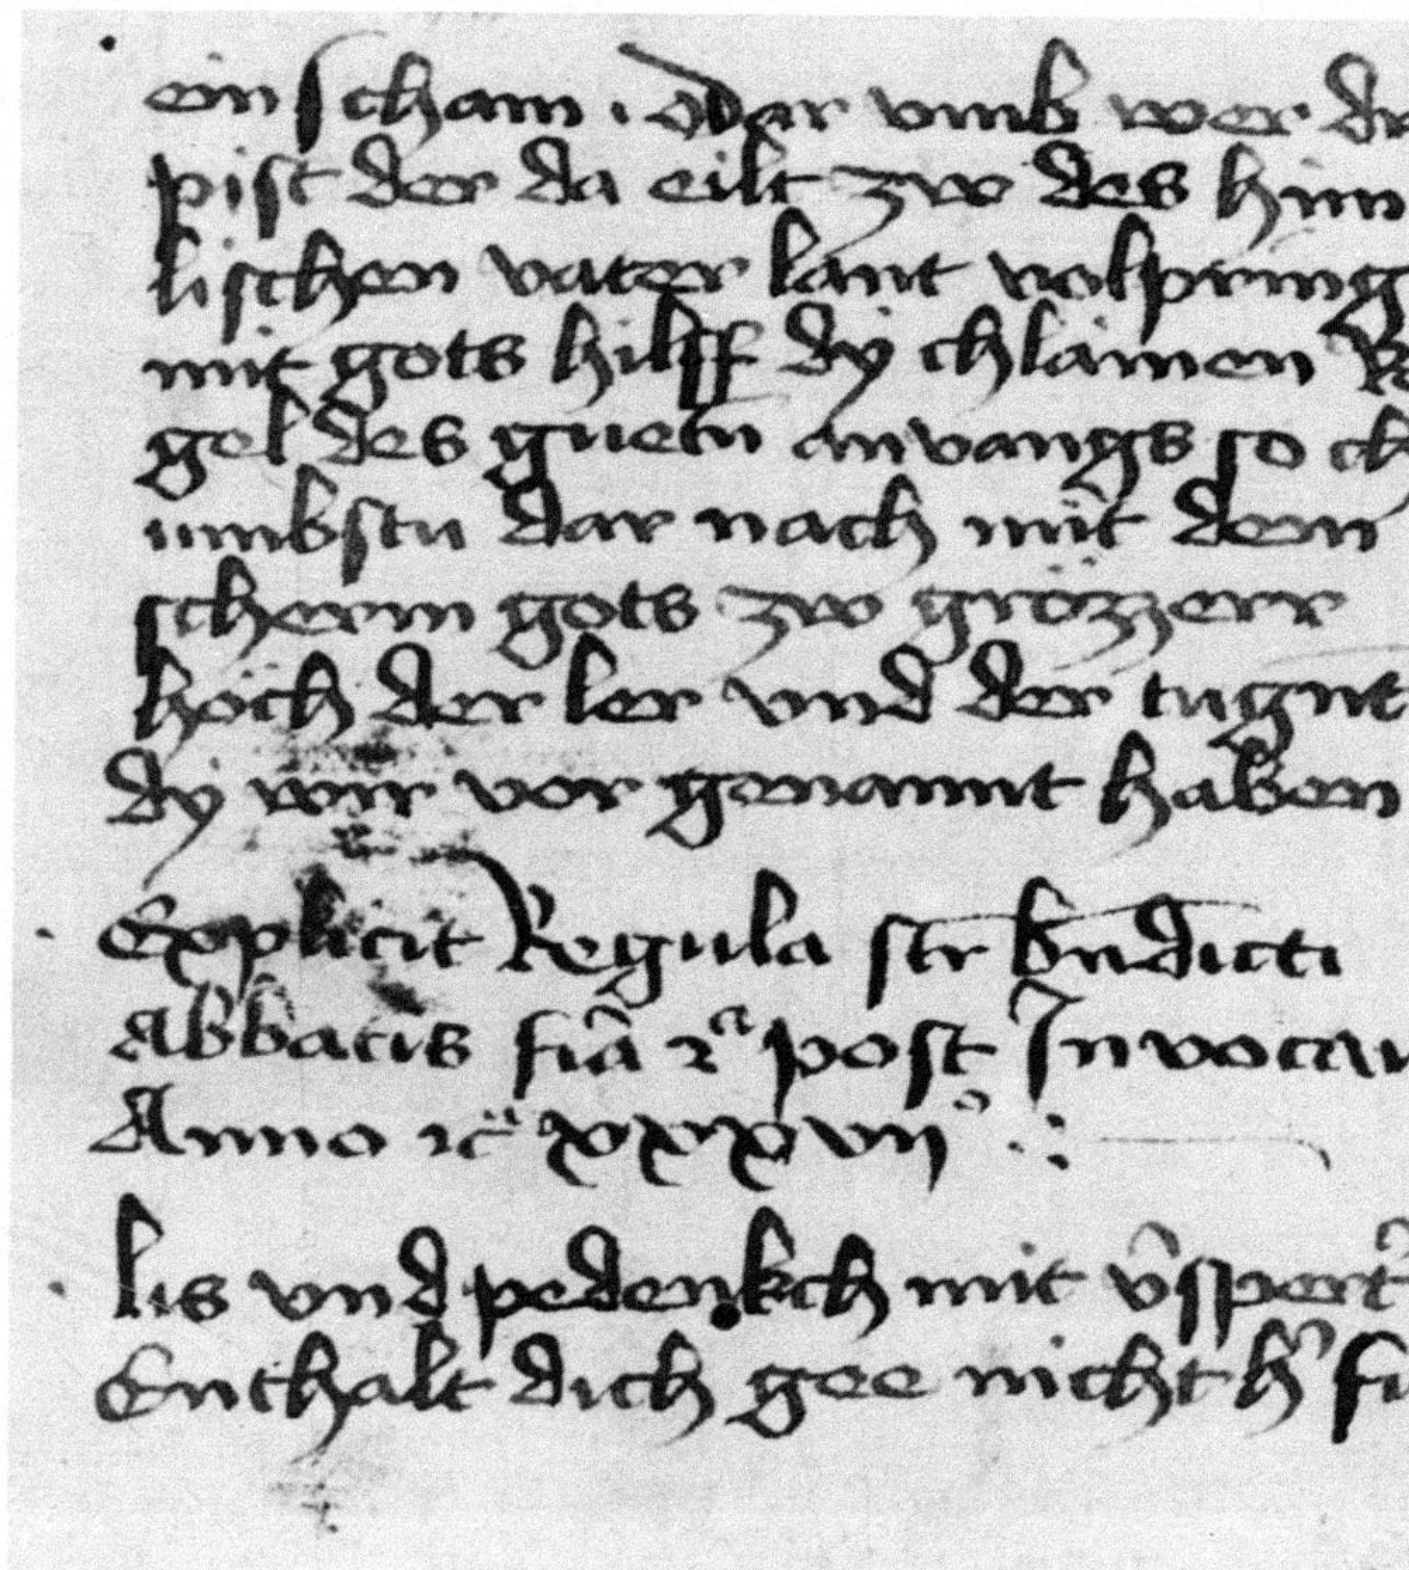 ein scham . dar vmb wer du
pist der da eilt zw des him
lischen vater lant volpring
mit gots hilff dy chlainen Re
gel des guetn anvangs so ch
umbstu dar nach mit dem
scherm gots zw grözzerr
höch der ler vnd der tugnt
dy wir vor genannt haben
Explicit Regula sti bndicti
Abbatis fia 2a post Invocau
Anno rc xxxvij° .:
lis vnd pedenkch mit v̂spert
Enthalt dich gee nicht h̓ fu